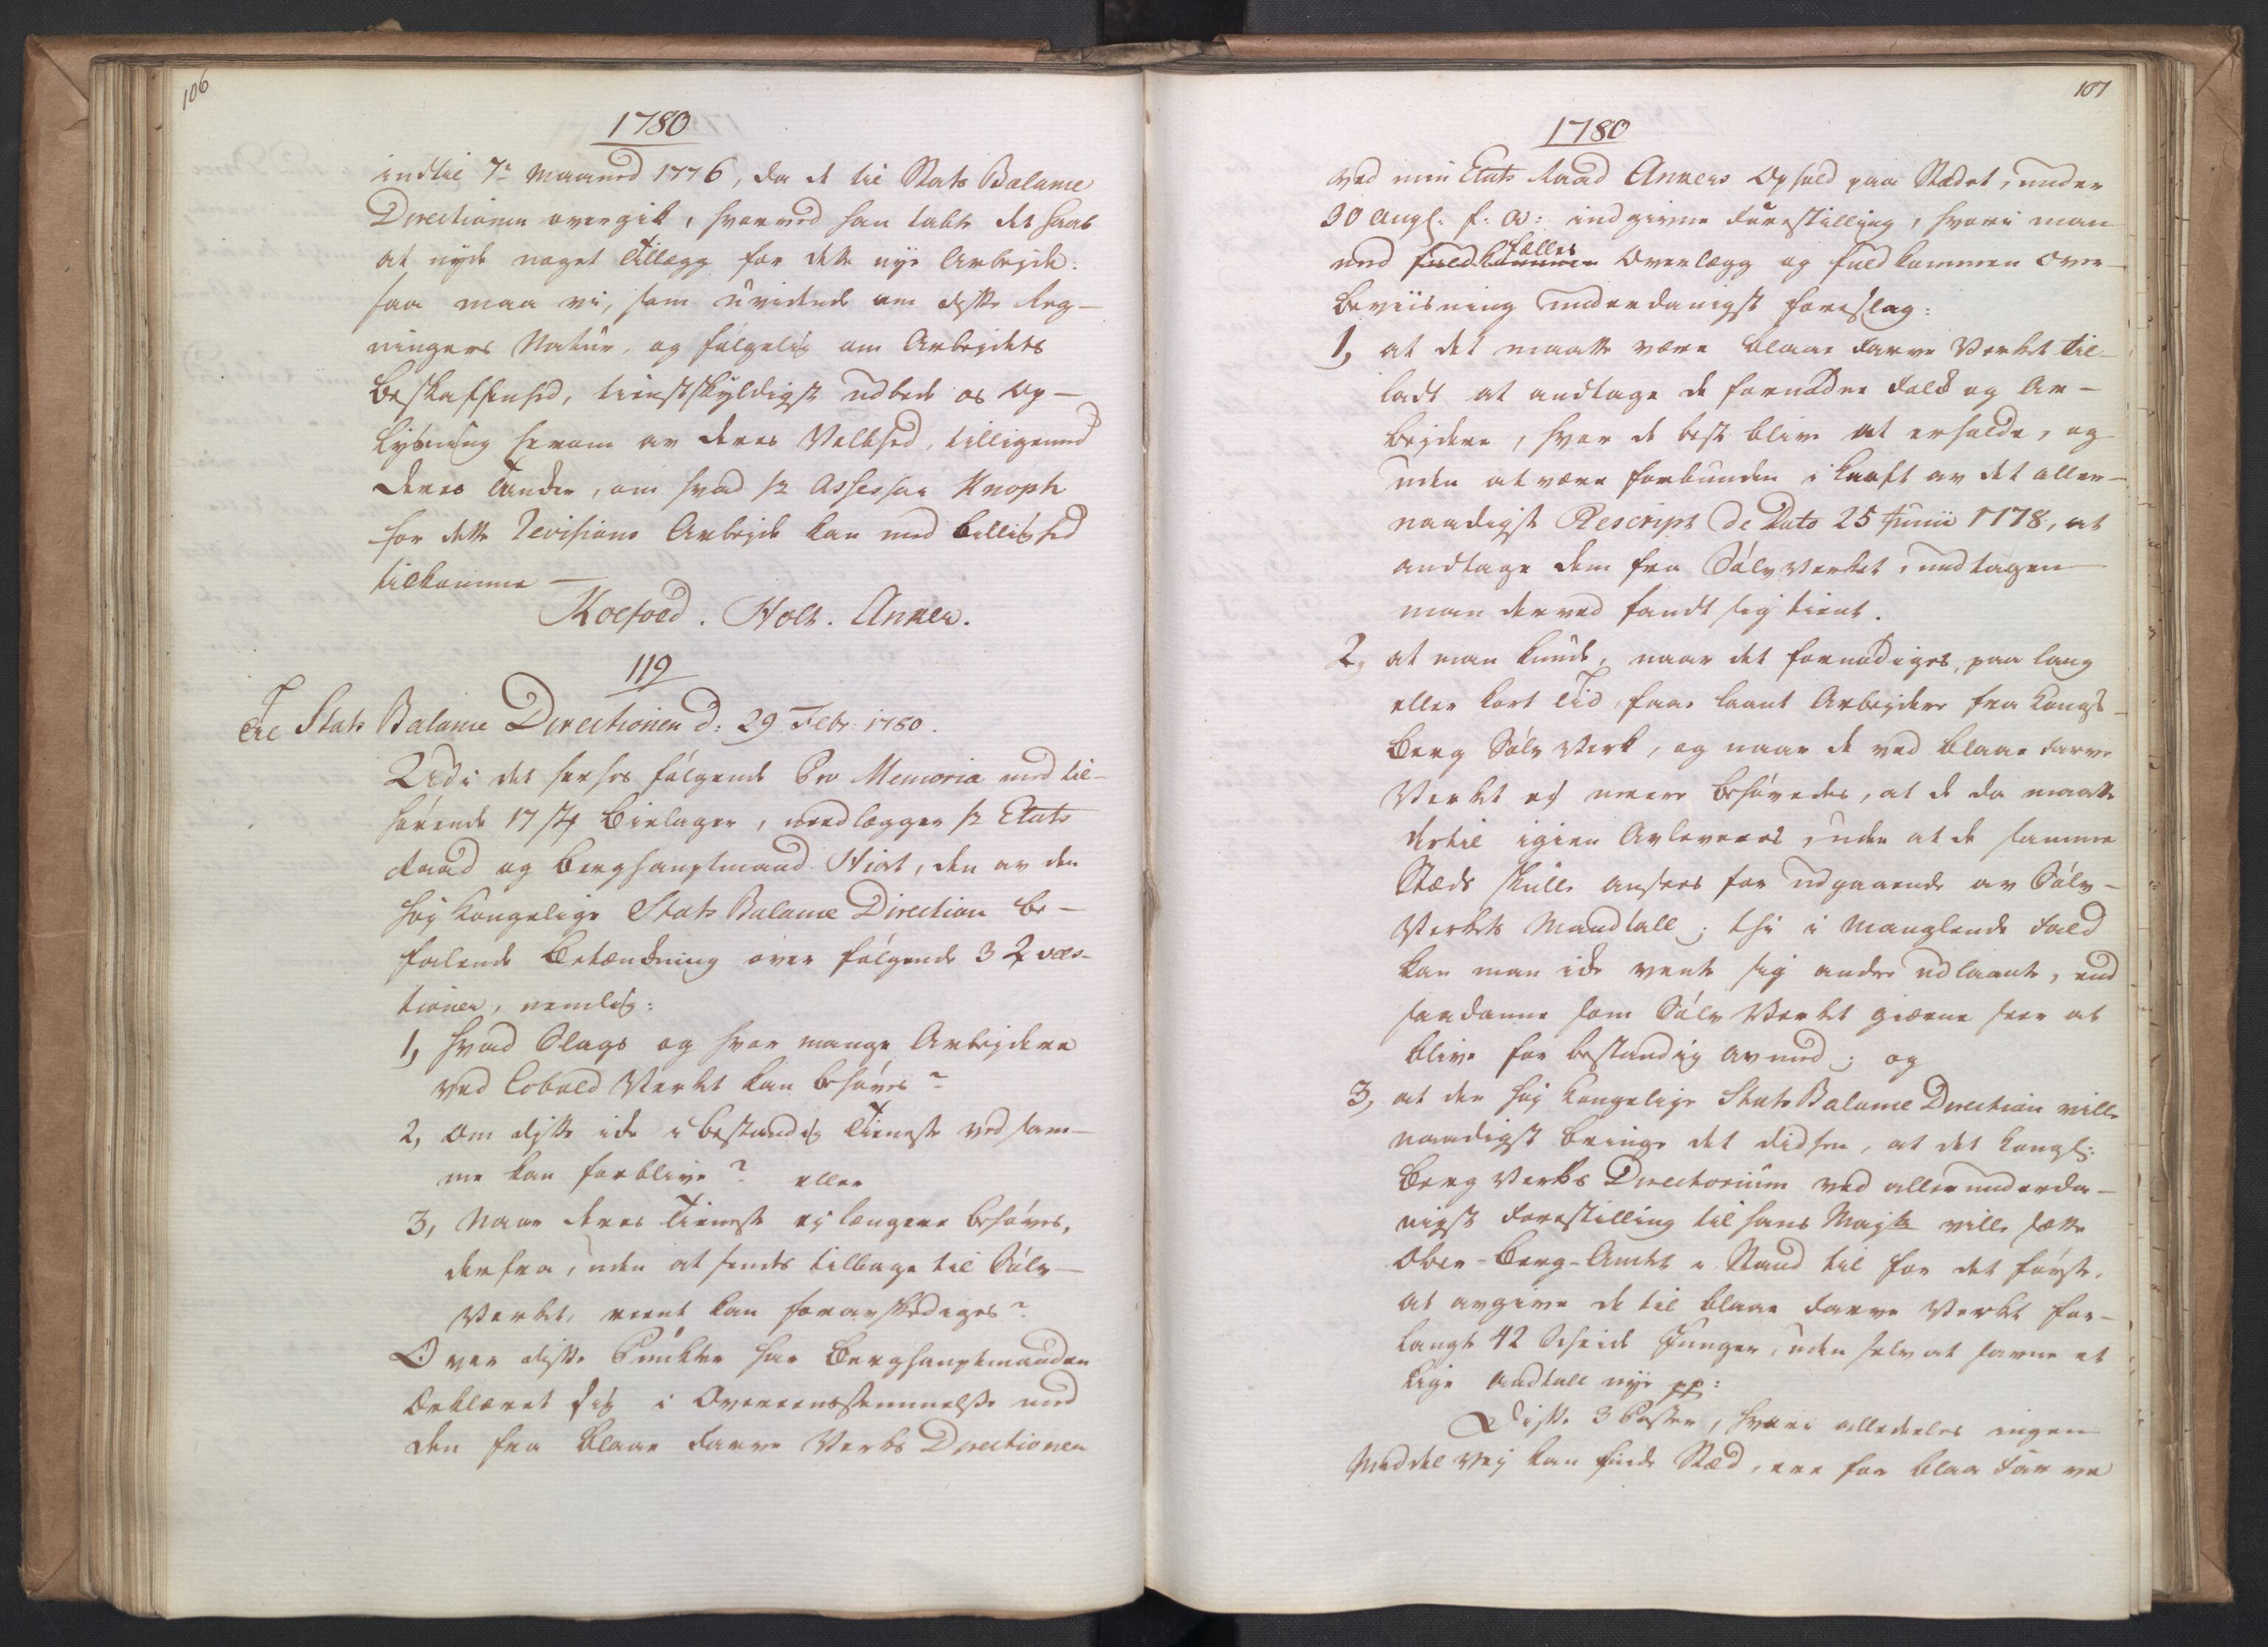 106
1780
indtil 7r Maaned 1776, da de til Stats Balance
Directionen overgik, hvorved han tabte det Haab
at nyde noget Tillæg for dette nye Arbejde:
saa maa vi, som uvidende om disse Reg-
ningers Natur, og følgelig om Arbejdets
Beskaffenhed, tienstskyldigst udbede os Op-
lysning herom av deres Velbhed, tilligemed
deres Tanker, om hvad Hr Assessor Knoph
for dette Revisions Arbejde kan med Billighed
tilkomme —
Koefoed. Holt. Anker.
119
Til Stats Balance Directionen d: 29 Febr. 1780.
Udi det herhos følgende Pro Memoria med til-
hørende 17 Stk Bielager, nedlægger Hr Etats
Raad og Berghauptmand Hiort, den av den
høj Kongelige Stats Balance Direction be-
falende Betænkning over følgende 3 Qvæs-
tioner, nemlig:
1, Hvad Slags og hvor mange Arbejdere
ved Cobold Verket kan behøves?
2, Om disse ike i bestandig Tieneste ved sam-
me kan forblive? eller
3, Naar deres Tieneste ej længere behøves,
derfra, uden at sendes tilbage til Sølv-
Verket, reent kan foravskediges?
Over disse Puncter har Berghauptmanden
Erklæret sig i Overeensstemmelse med
den fra Blaae Farve Verks Directionen
107
1780
ved min Etats Raad Ankers Ophold paa Stædet, under
30 Aug. f: A: indgivne Forestilling, hvori man
med fuldkommen fælles Overlæg og fuldkommen Over-
beviisning underdanigst foreslog:
1, at det maatte være Blaae Farve Verket til-
ladt at andtage de fornødne Folk og Ar-
bejdere, hvor de best blive at erholde, og
uden at være forbunden i Kraft av det aller-
naadigst Rescript de Dato 25 Junii 1778, at
andtage dem fra Sølv Verket, undtagen
man derved fandt sig tient.
2, at man kunde, naar det fornødiges, paa lang
eller kort Tid, faae laant Arbejdere fra Kongs-
berg Sølv Verk, og naar de ved Blaae Farve
Verket ej meere behøvedes, at de da maatte
dertil igien Avleveres, uden at de samme
Stæds skulle ansees for udgaaende av Sølv-
Verkets Mandtall; thi i manglende Fald
kan man ike vente sig andre udlaante, end
saadanne som Sølv Verket gierne seer at
blive for bestandig av med; og
3, at den høj Kongelige Stats Balance Direction ville
naadigst bringe det didhen, at det Kongl:
Berg Verks Directorium ved allerunderda-
nigst Forestilling til Hans Majst ville sætte
Ober-Berg-Amtet i Stand til for det første,
at avgive de til Blaae Farve Verket for-
langte 42 Scheide Junger, uden selv at savne et
lige Andtall nye pp:
Disse 3 Poster, hvori alledeeles ingen
Middel Vej kan finde Stæd, ere for Blaa Farve